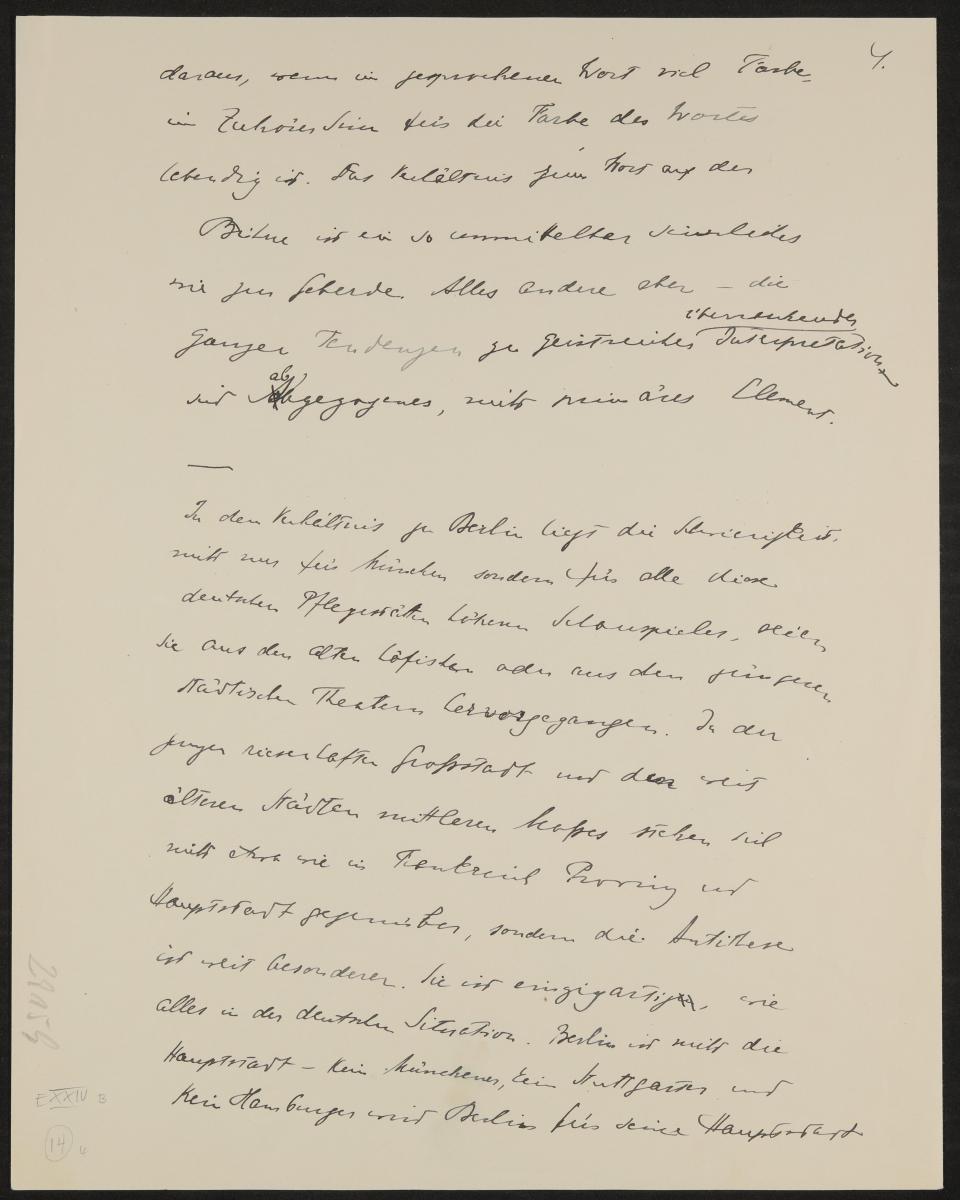 4.
daraus, wenn im gesprochenen Wort viel Farbe,
im Zuhörer Sinn für die Farbe des Wortes
lebendig ist. Das Verhältnis zum Wort auf der
Bühne ist ein so unmittelbar sinnliches
wie zur Geberde. Alles andere aber – die
überwuchernden
ganzen Tendenzen zu geistreicher Interpretation
ab
sind abgezogenes, nicht primäres Element.
—
In dem Verhältnis zu Berlin liegt die Schwierigkeit,
nicht nur für München sondern für alle diese
deutschen Pflegestätten höheren Schauspieles, seien
sie aus den alten höfischen oder aus den jüngeren
städtischen Theatern hervorgegangen. In der
jungen riesenhaften Großstadt und den weit
älteren Städten mittleren Maßes stehen sich
nicht etwa wie in Frankreich Provinz und
Hauptstadt gegenüber, sondern die Antithese
ist weit besonderer. Sie ist einzigartig, wie
alles in der deutschen Situation. Berlin ist nicht die
Hauptstadt – kein Münchener, kein Stuttgarter und
kein Hamburger wird Berlin für seine Hauptstadt
E XXIV B
14